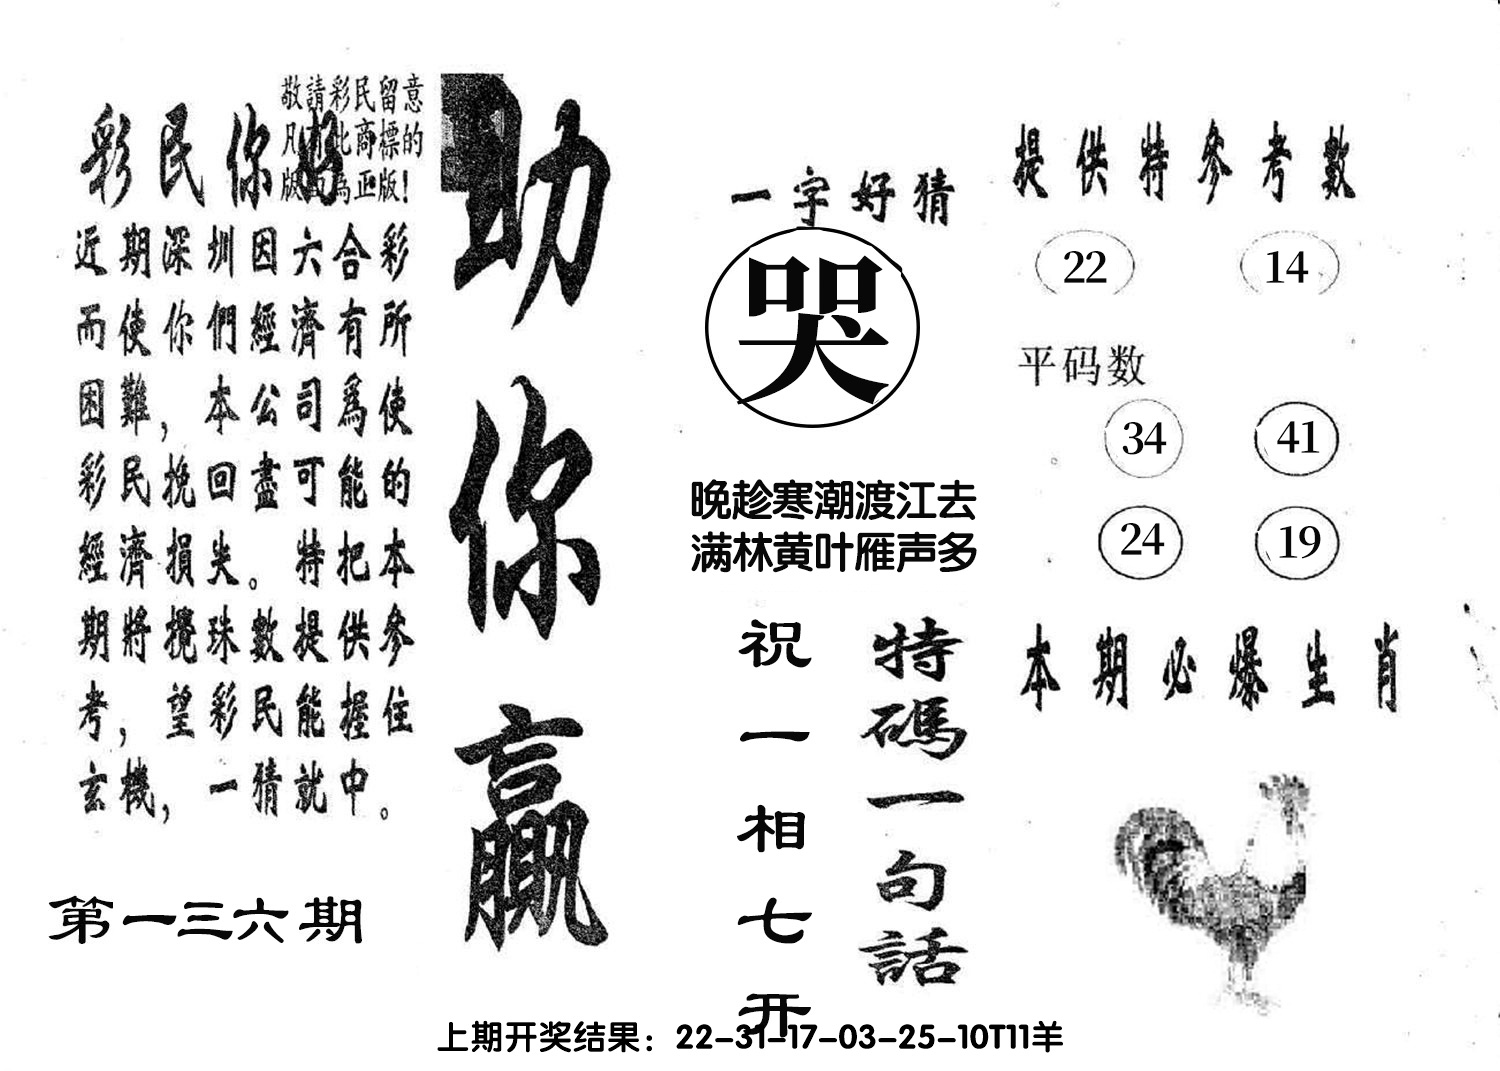 敬請彩民留意
凡有此商標的
版面為正版!
彩民你好
近期深圳因六合彩
而使你們經濟有所
困難，本公司爲使
彩民挽回盡可能的
經濟損失。特把本
期將攪珠數提供參
考，望彩民能握住
玄機，一猜就中。
第一三六期
助你贏
一字好猜
哭
晚趁寒潮渡江去
满林黄叶雁声多
特碼一句話
祝一相七开
提供特參考數
22 14
平码数
34 41
24 19
本期必爆生肖
上期开奖结果：22-31-17-03-25-10T11羊